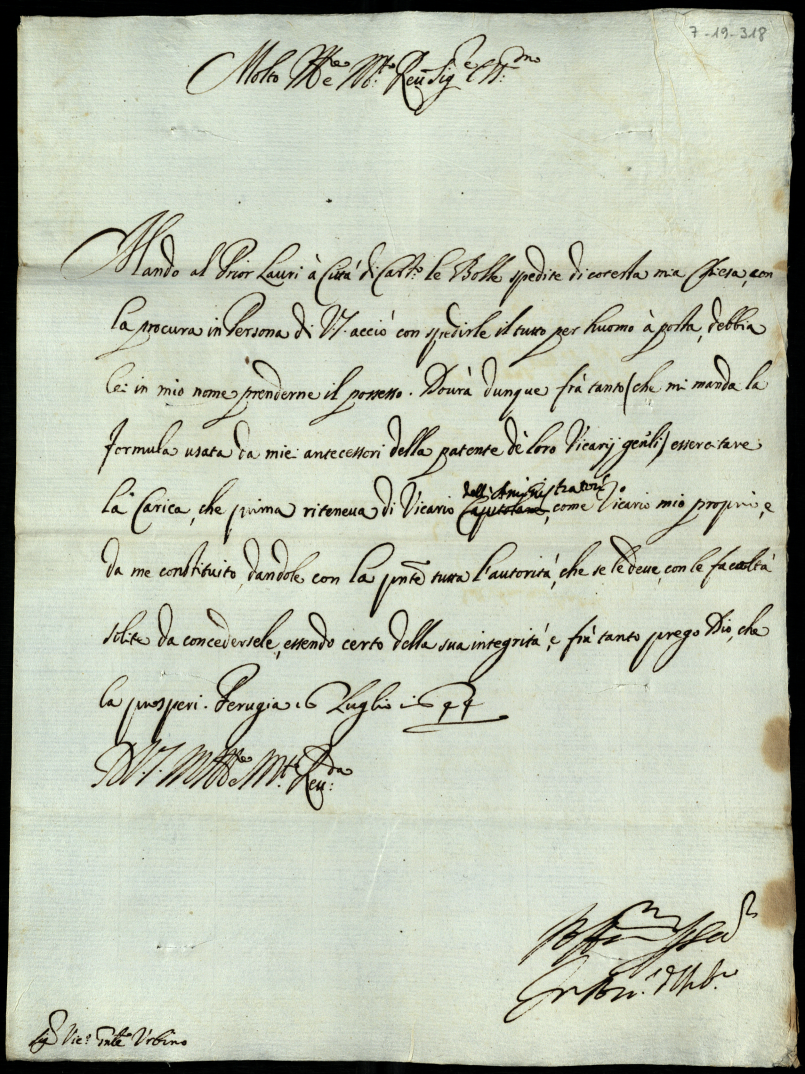 7-19-318
Molto Ill.re e M.to Reu. Sig.re
Mando al Prior Lauri à Città di Cast.o le Bolle spedite di cotesta mia Chiesa, con
la procura in Persona di V.S. acciò con spedirle il tutto per huomo à posta, debbia
lei in mio nome prenderne il possesso. Dourà dunque frà tanto (che mi manda la
formula usata da miei antecessori della patente de loro Vicarij gñali) essercitare
la Carica, che prima riteneva di Vicario Capitolare, come Vicario mio proprio, e
da me constituito, dandole con la pñte tutta l'autorità, che se le deue, con le facoltà
solite da concedersele, essendo certo della sua integrità, e frà tanto prego Dio, che
la prosperi. Perugia 16 Luglio
D V.S. Molto Ill.re e M.to Reu.da
Sig.r Vic.o Urbino